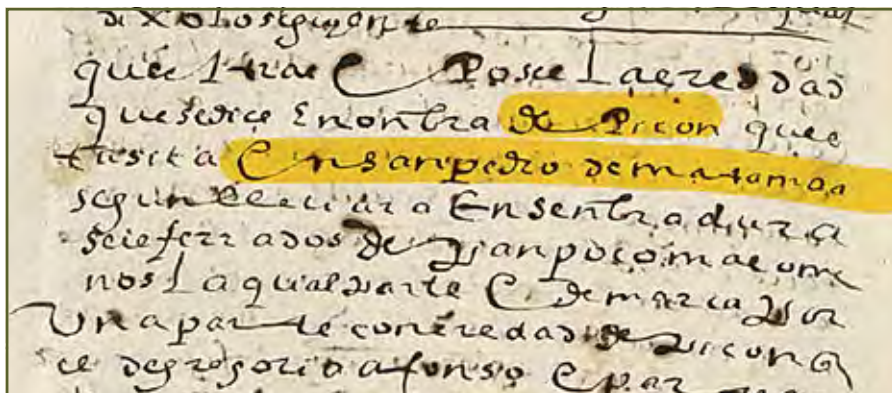 di xo lo siguyente
que trae E Posee La eredad
que se dice E nonbra de Picon que
esta sita En san pedro de matamaa
segun lleuara En senbradura
seis ferrados de pan poco mas o me
nos La qual parte E demarca por
Una parte con eredad de picon q
se de gregorio afonso E par